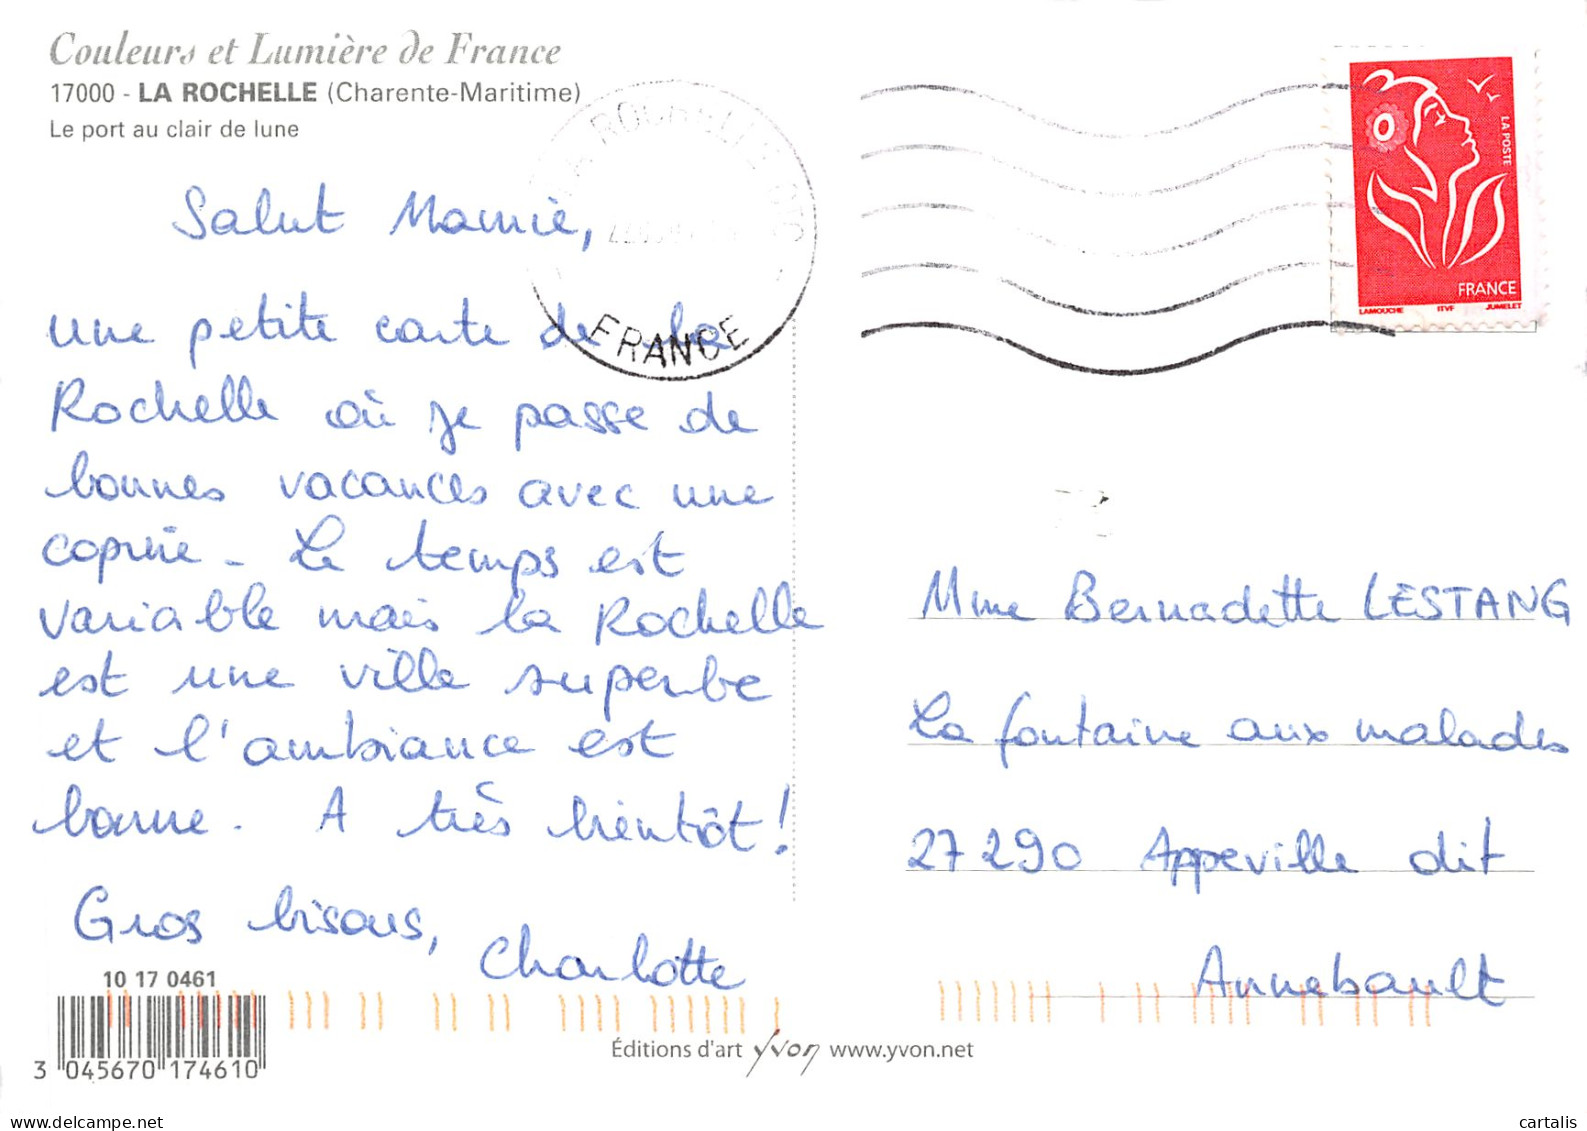 Couleurs et Lumière de France
17000 - LA ROCHELLE (Charente-Maritime)
Le port au clair de lune
LA ROCHELLE
FRANCE
LA POSTE
FRANCE
LAMOUCHE ITVF JUMELET
Salut Mamie,
une petite carte de la
Rochelle où je passe de
bonnes vacances avec une
copine - Le temps est
variable mais la Rochelle
est une ville superbe
et l'ambiance est
bonne. A très bientôt !
Gros bisous,
Charlotte
Mme Bernadette LESTANG
La fontaine aux malades
27290 Appeville dit
Annebault
10 17 0461
3 045670 174610
Éditions d'art yvon www.yvon.net
delcampe.net
cartalis